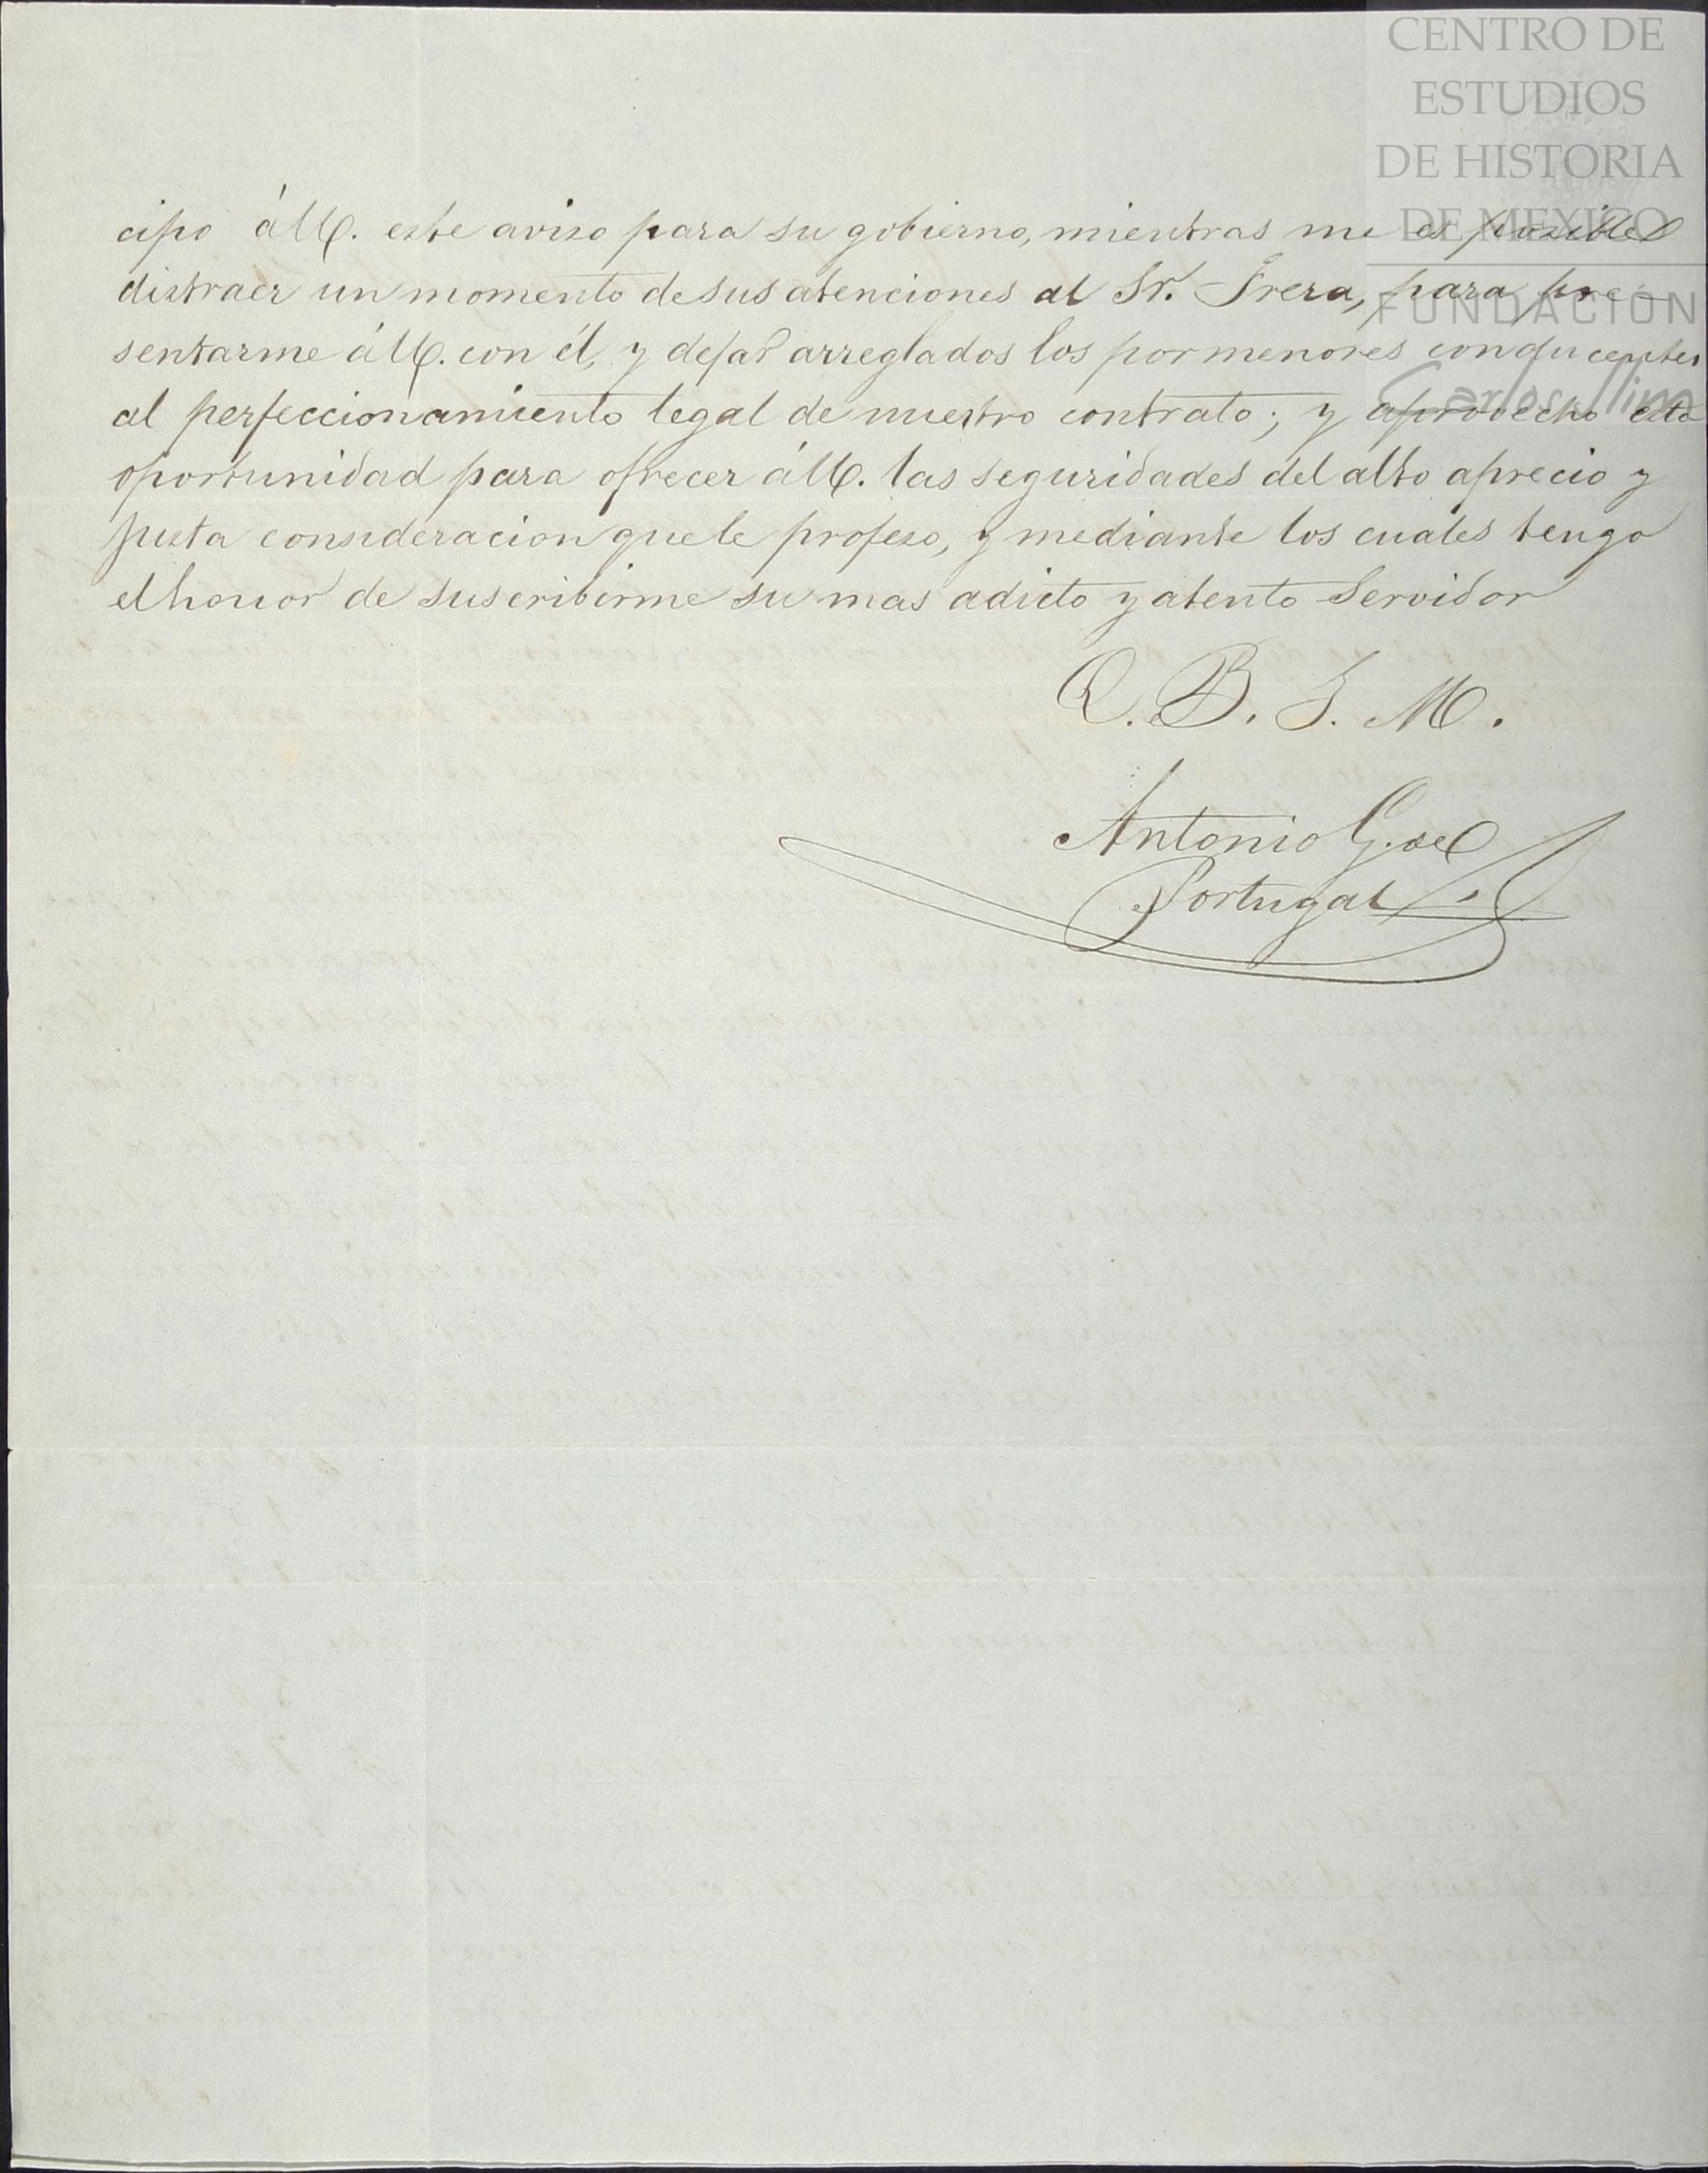 CENTRO DE
ESTUDIOS
DE HISTORIA
DE MEXICO
FUNDACIÓN
Carlos Slim
cipo á U. este aviso para su gobierno, mientras me es posible
distraer un momento de sus atenciones al Sr. Frera, para pre-
sentarme á U. con él, y dejar arreglados los pormenores conducentes
al perfeccionamiento legal de nuestro contrato; y aprovecho esta
oportunidad para ofrecer á U. las seguridades del alto aprecio y
justa consideracion que le profeso, y mediante los cuales tengo
el honor de suscribirme su mas adicto y atento Servidor
Q. B. S. M.
Antonio G. del
Portugal